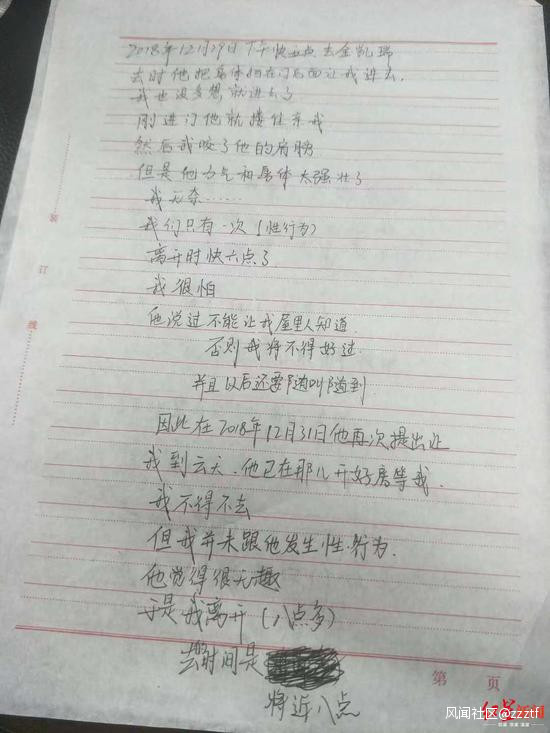 2018年12月29日下午快五点去金凯瑞
去时他把身体掩在门后面让我进去.
我也没多想就进去了
刚进门他就搂住亲我
然后我咬了他的肩膀
但是他力气和身体太强壮了
我无奈……
我们只有一次(性行为)
离开时快六点了
我很怕
他说过不能让我屋里人知道.
否则我将不得好过.
并且以后还要随叫随到.
因此在2018年12月31日他再次提出让
我到云天.他已在那儿开好房等我.
我不得不去
但我并未跟他发生性行为.
他觉得很无趣
于是我离开(八点多)
去时间是
将近八点
装
订
线
第 页
红星新闻
风闻社区@zzztf